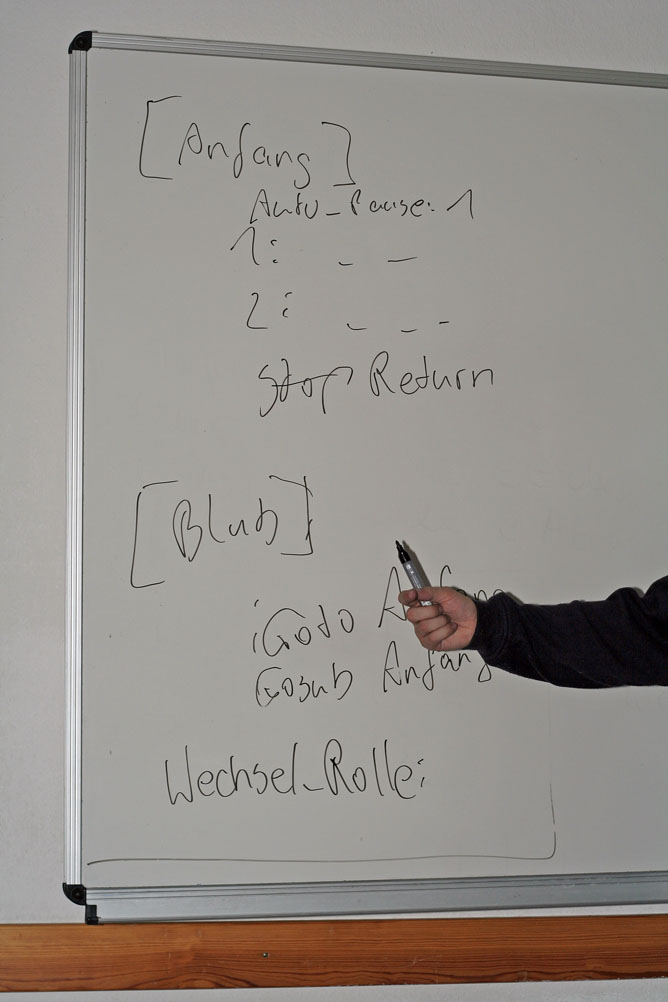 [Anfang]
Auto_Pause: 1
1: _ _
2: _ _ _
Stop Return
[Blub]
iGoto Anfang
Gosub Anfang
Wechsel_Rolle: